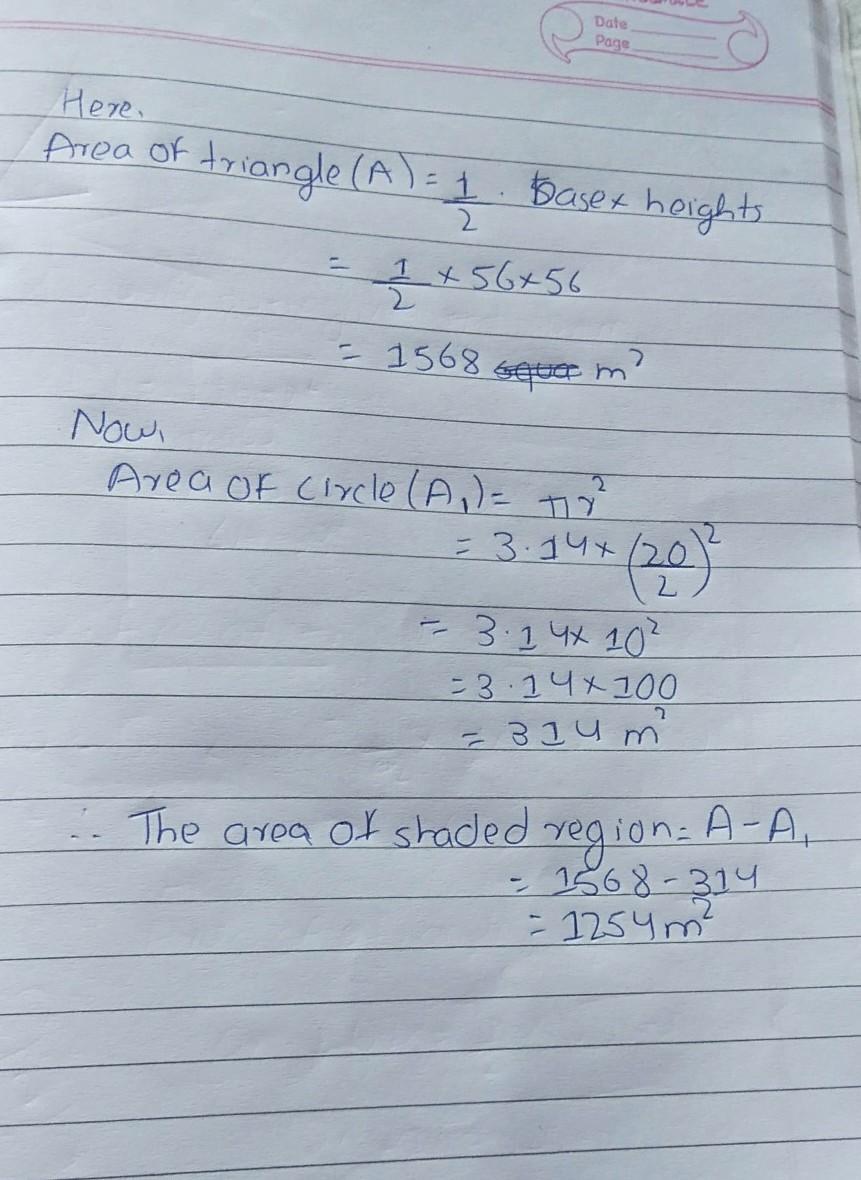 Date
Page
Here,
Area of triangle (A) = 1/2 . base x heights
= 1/2 x 56 x 56
= 1568 m²
Now,
Area of circle (A₁) = πr²
= 3.14 x (20/2)²
= 3.14 x 10²
= 3.14 x 100
= 314 m²
∴ The area of shaded region = A - A₁
= 1568 - 314
= 1254 m²